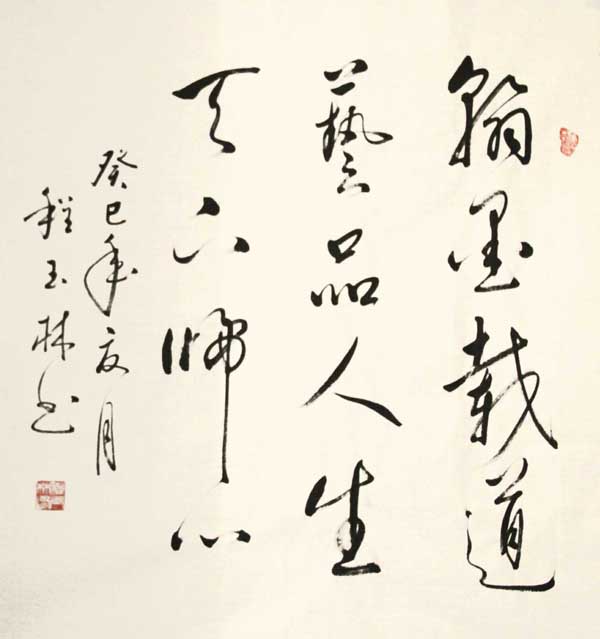 翰墨载道
藝品人生
天下师心
癸巳年夏月
程玉林书